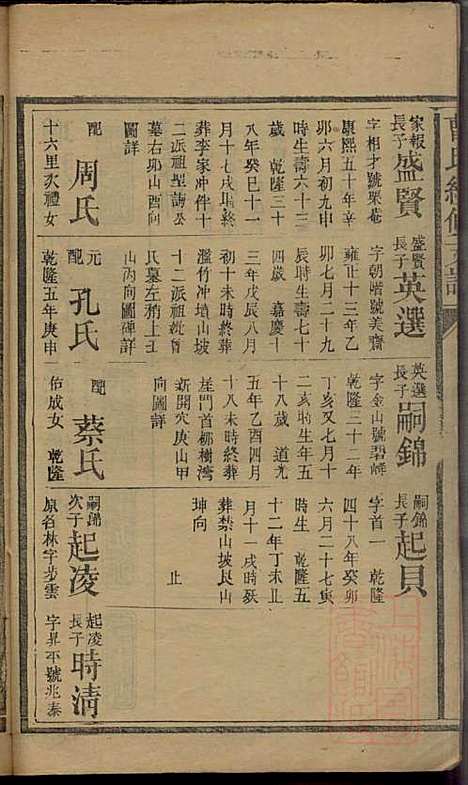 曹氏續修支譜
家報長子盛賢
字相才號梁菴
康熙五十年辛
卯六月初九申
時生壽六十三
歲 乾隆三十
八年癸巳十一
月十七戌塲終
葬李家冲伴十
二派祖型誨公
墓右卯山酉向
圖詳
配周氏
十六里次禮女
盛賢長子英選
字朝階號美齋
雍正十三年乙
卯七月二十九
辰時生壽七十
四歲 嘉慶十
三年戊辰八月
初十未時終葬
濫竹冲墳山坡
十二派祖
氏墓左稍上壬
山丙向圖碑詳
元配孔氏
乾隆五年庚申
英選長子嗣錦
字金山號碧峰
乾隆三十二年
丁亥又七月十
二亥時生年五
十八歲 道光
五年乙酉四月
十八未時終葬
崖門首柳樹灣
新開穴庚山甲
向圖詳
配蔡氏
佑成女 乾隆
嗣錦長子起貝
字首一 乾隆
四十八年癸卯
六月二十七寅
時生 乾隆五
十二年丁未止
月十一戌時殀
葬禁山坡艮山
坤向
止
嗣錦次子起凌
原名林字步雲
起凌長子時清
字昇平號兆泰